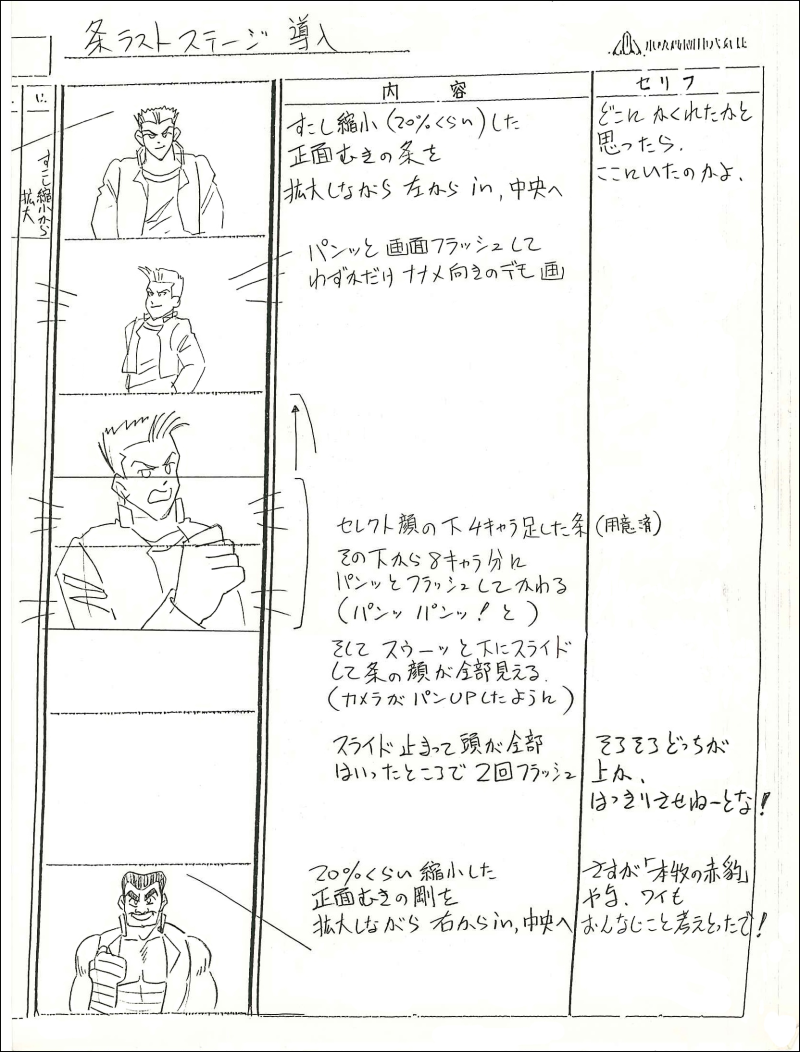 条ラストステージ 導入
内 容
セリフ
に
すこし縮小から
拡大
すこし縮小(20%くらい)した
正面むきの条を
拡大しながら 左からin,中央へ
どこに かくれたかと
思ったら、
ここにいたのかよ、
パンッと 画面フラッシュして
わずかだけ ナナメ向きのデモ画
セレクト顔の下 4キャラ足した条(用意済)
その下から8キャラ分に
パンッとフラッシュしてかわる
(パンッ パンッ!と)
そして スウーッと下にスライド
して条の顔が全部見える.
(カメラがパンUPしたように)
スライド止まって頭が全部
はいったところで 2回フラッシュ
そろそろどっちが
上か、
はっきりさせねーとな!
20%くらい縮小した
正面むきの剛を
拡大しながら 右からin,中央へ
さすが「本牧の赤豹」
や与、ワイも
おんなじこと考えとったで!